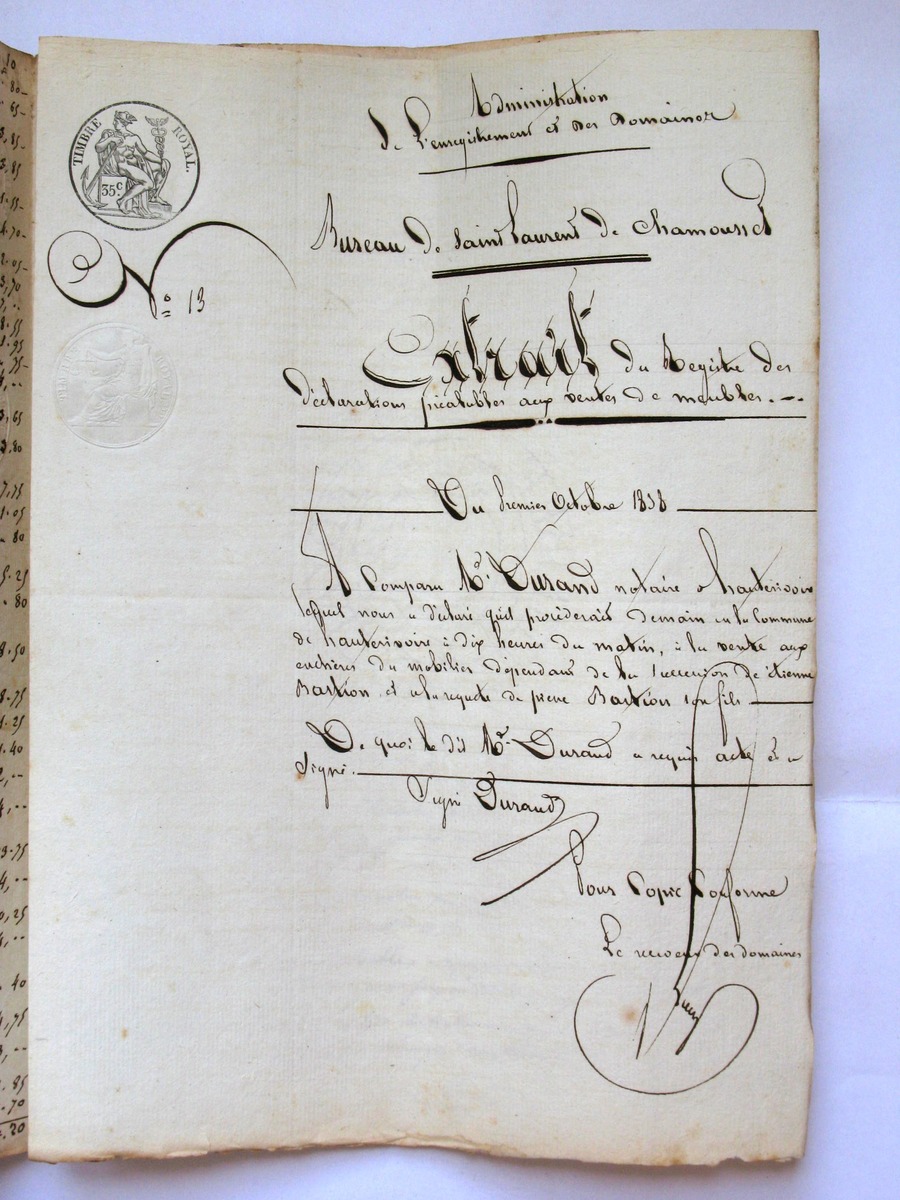 TIMBRE ROYAL.
35c.
Administration
de L'enregistrement et des Domaines
Bureau de Saint Laurent de Chamousset
No 13
Extrait du Registre des
déclarations préalables aux ventes de meubles.
Du premier Octobre 1838
A Comparu Mr. Durand notaire a hauterivoire
lequel nous a déclaré qu'il procéderait demain en la Commune
de hauterivoire à dix heures du matin, à la vente aux
enchères du mobilier dépendant de la succession de étienne
Bastion et a la requete de pierre Bastion son fils
De quoi le dit Mr. Durand a requis acte et a
signé.
Signé Durand
Pour Copie Conforme
Le receveur des domaines
10
80
65
3,85
3,85
1.55
4.70
2.05
3,70
8.55
1.95
75
3,65
3.80
7,75
1.05
80
5.25
80
8.50
8.75
1.25
1.40
3.75
0,25
40
4,75
85
70
20